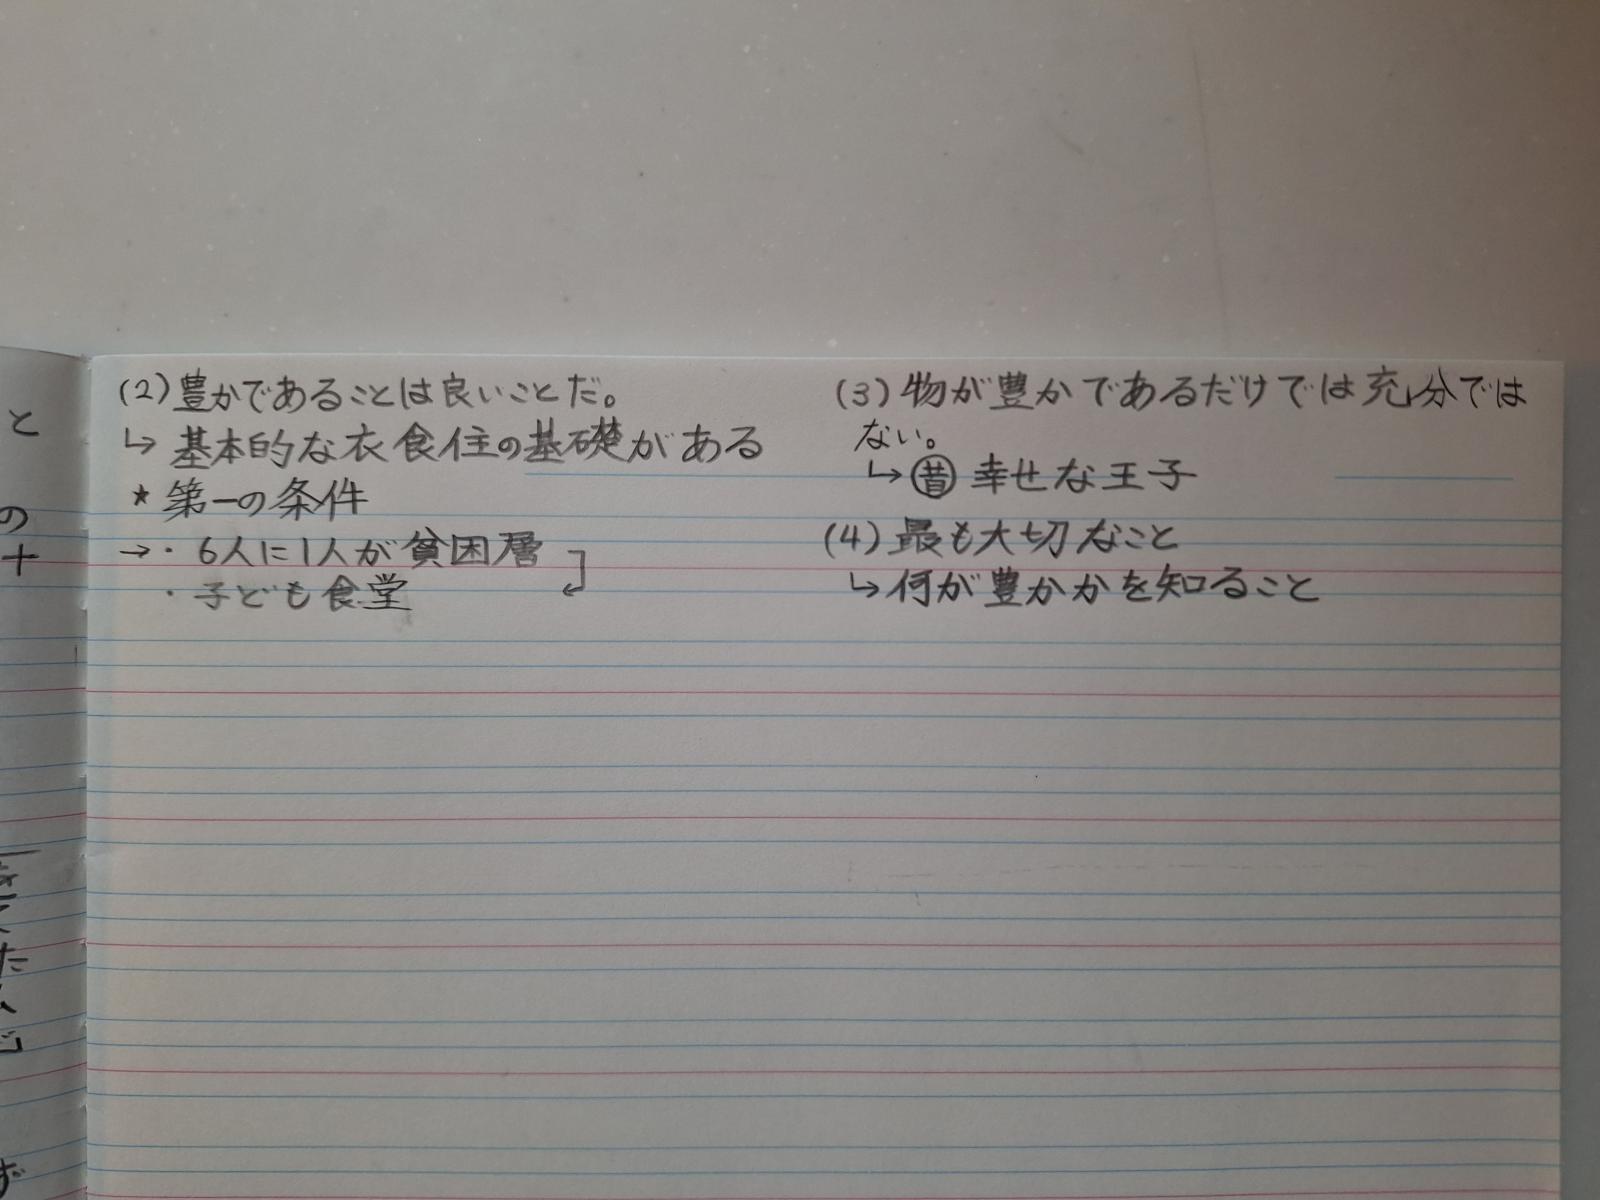 (2)豊かであることは良いことだ。
↳ 基本的な衣食住の基礎がある
★ 第一の条件
→・6人に1人が貧困層
・子ども食堂
(3)物が豊かであるだけでは充分では
ない。
↳昔 幸せな王子
(4)最も大切なこと
↳何が豊かかを知ること